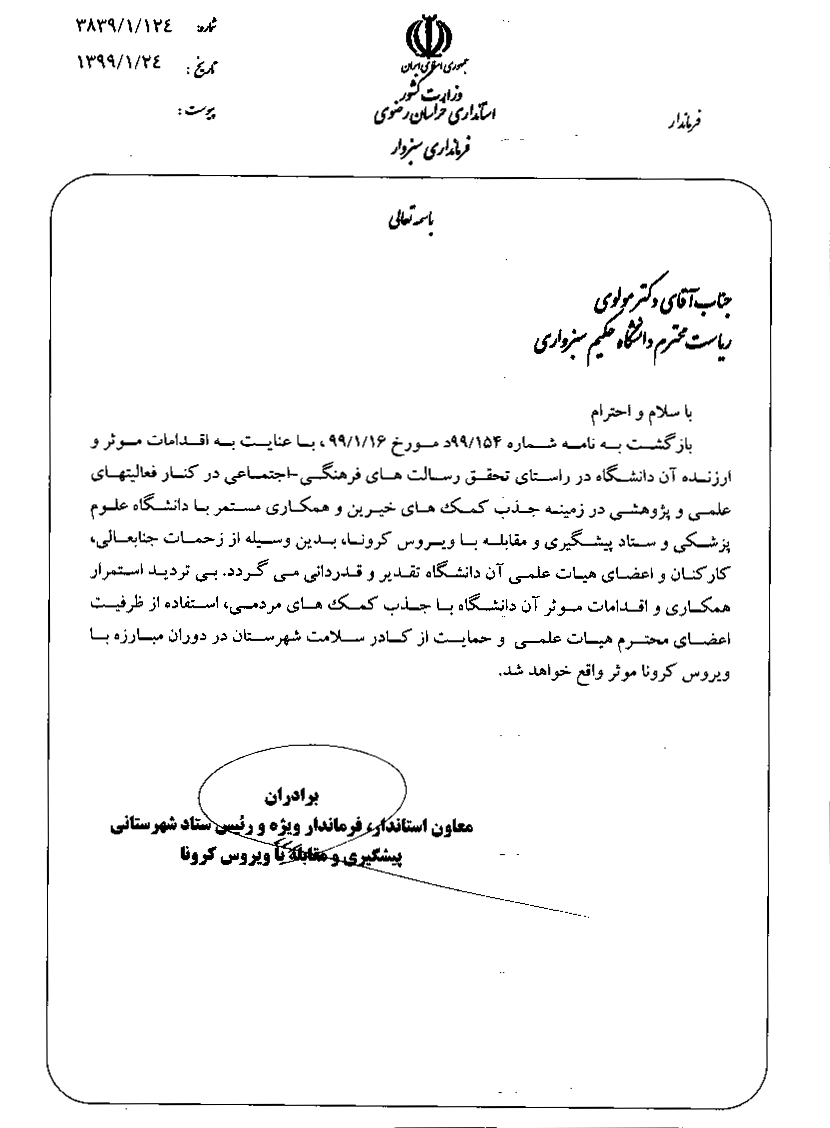 شماره: ۳۸۳۹/۱/۱۲٤
تاریخ: ۱۳۹۹/۱/۲٤
پیوست:
جمهوری اسلامی ایران
وزارت کشور
استانداری خراسان رضوی
فرمانداری سبزوار
فرماندار
باسمه تعالی
جناب آقای دکتر مولوی
ریاست محترم دانشگاه حکیم سبزواری
با سلام و احترام
بازگشت به نامه شماره ۹۹/۱۵۴د مورخ ۹۹/۱/۱۶ ، با عنایت به اقدامات موثر و
ارزنده آن دانشگاه در راستای تحقق رسالت های فرهنگی-اجتماعی در کنار فعالیتهای
علمی و پژوهشی در زمینه جذب کمک های خیرین و همکاری مستمر با دانشگاه علوم
پزشکی و ستاد پیشگیری و مقابله با ویروس کرونا، بدین وسیله از زحمات جنابعالی،
کارکنان و اعضای هیات علمی آن دانشگاه تقدیر و قدردانی می گردد. بی تردید استمرار
همکاری و اقدامات موثر آن دانشگاه با جذب کمک های مردمی، استفاده از ظرفیت
اعضای محترم هیات علمی و حمایت از کادر سلامت شهرستان در دوران مبارزه با
ویروس کرونا موثر واقع خواهد شد.
برادران
معاون استاندار، فرماندار ویژه و رئیس ستاد شهرستانی
پیشگیری و مقابله با ویروس کرونا